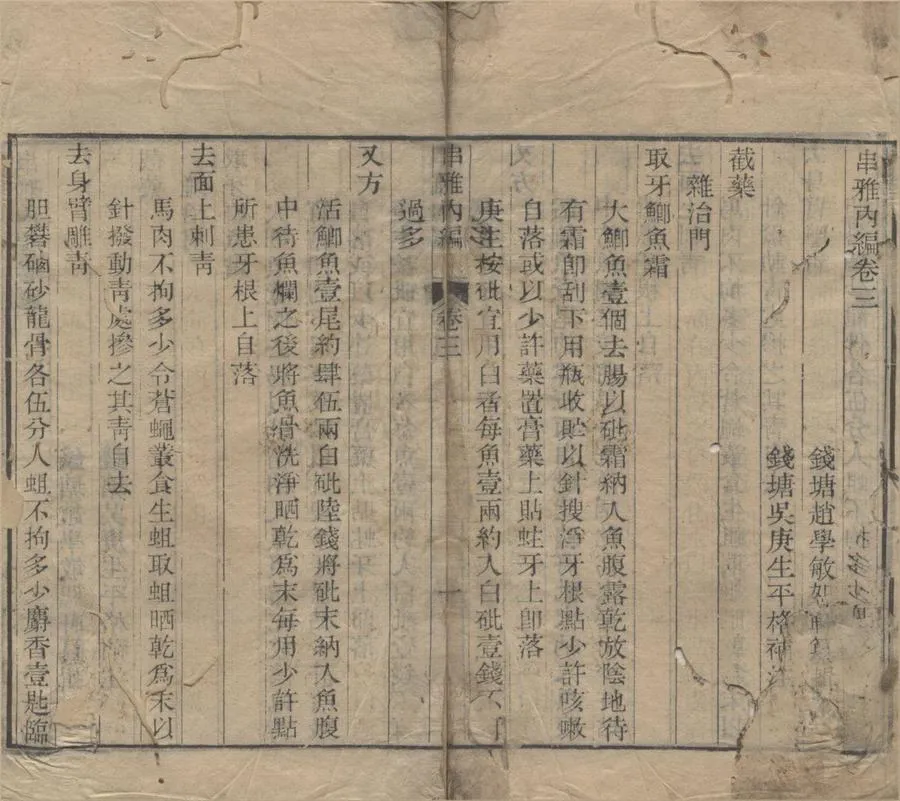 串雅內編卷三
錢塘趙學敏恕軒纂
錢塘吳庚生平格補注
截藥
雜治門
取牙鯽魚霜
大鯽魚壹個去腸以砒霜納入魚腹露乾放陰地待
有霜卽刮下用瓶收貯以針搜淨牙根點少許咳嗽
自落或以少許藥置膏藥上貼蛀牙上卽落
庚生按砒宜用白者每魚壹兩約入白砒壹錢不可
串雅內編 卷三 一
過多
又方
活鯽魚壹尾約肆伍兩白砒陸錢將砒末納入魚腹
中待魚爛之後將魚骨洗淨晒乾爲末每用少許點
所患牙根上自落
去面上刺靑
馬肉不拘多少令蒼蠅叢食生蛆取蛆晒乾爲末以
針撥動靑處摻之其靑自去
去身臂雕靑
胆礬硇砂龍骨各伍分人蛆不拘多少麝香壹匙臨